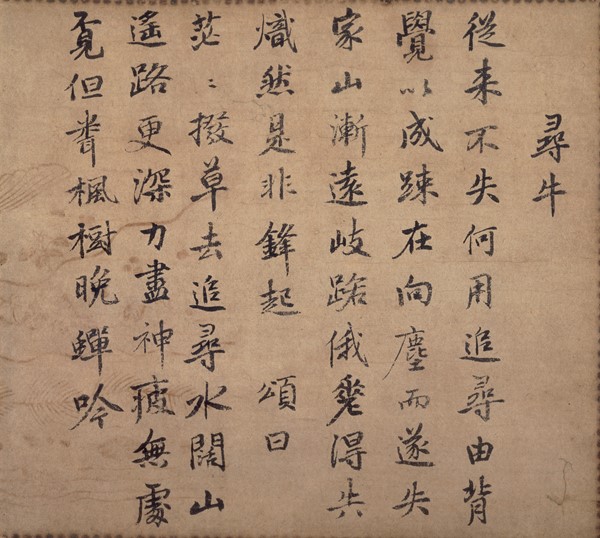 尋牛
從来不失何用追尋由背
覺以成踈在向塵而遂失
家山漸遠岐路俄差得失
熾然是非鋒起　頌曰
茫〻撥草去追尋水闊山
遙路更深力盡神疲無處
覔但聞楓樹晚蟬吟